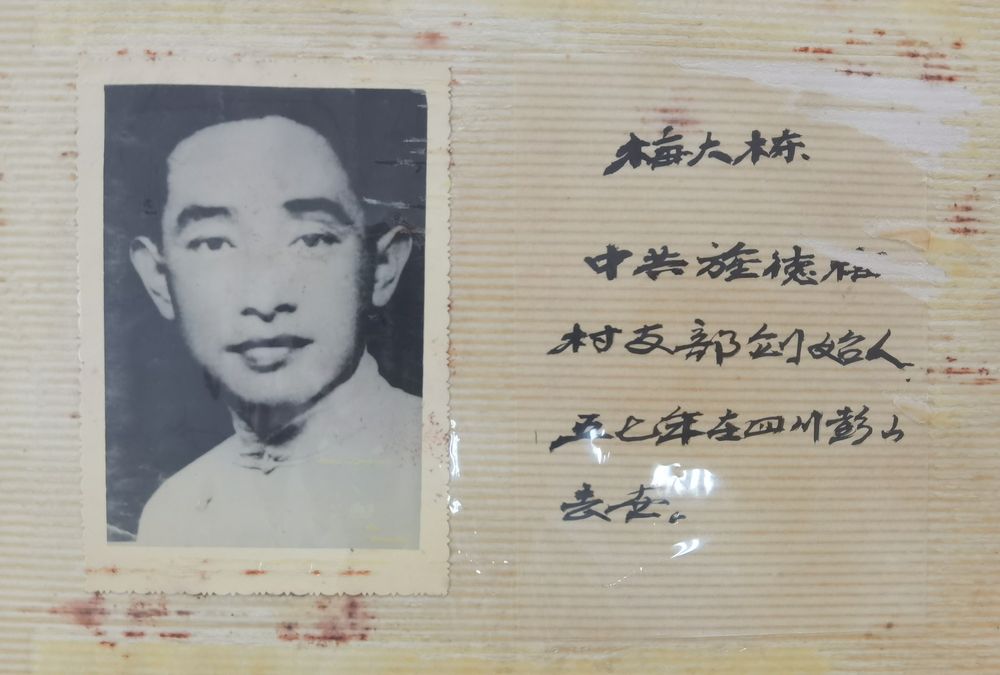 梅大栋
中共旌德
村支部创始人
五七年在四川彭山
去世。